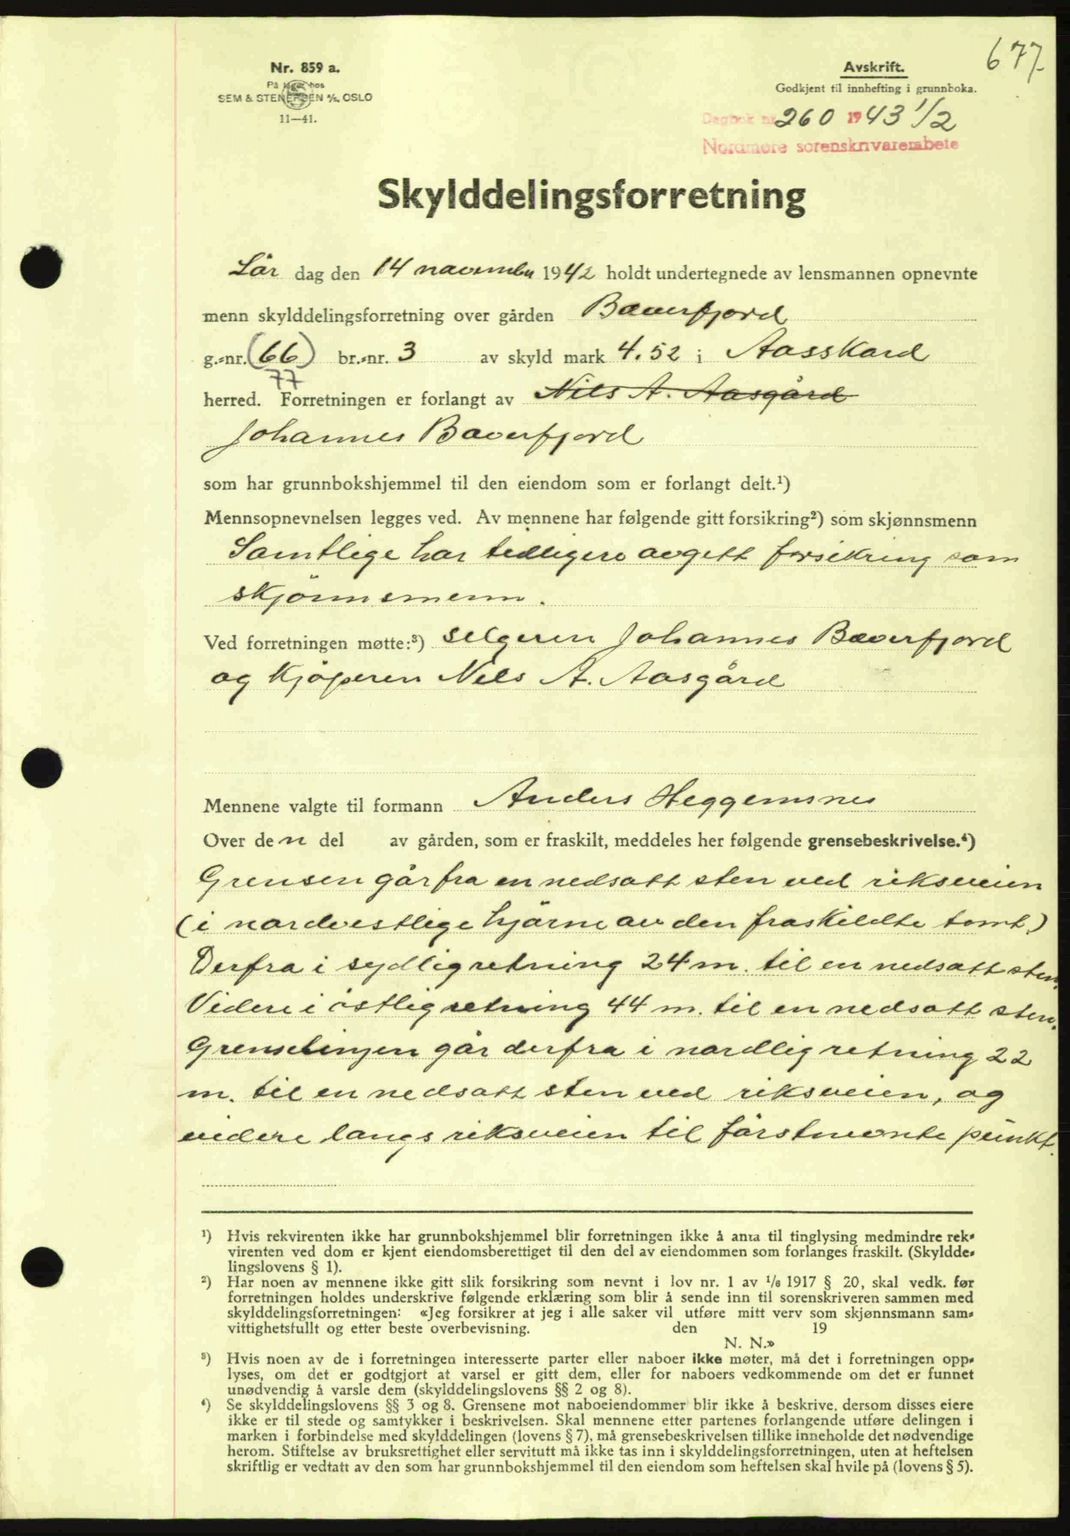 677
Nr. 859 a.
På lager hos
SEM & STENERSEN A/S, OSLO
11—41.
Avskrift.
Godkjent til innhefting i grunnboka.
Dagbok nr. 260 1943 1/2
Nordmøre sorenskriverembete
Skylddelingsforretning
Lör dag den 14 november 1942 holdt undertegnede av lensmannen opnevnte
menn skylddelingsforretning over gården Bæverfjord
g.-nr. (66) br.-nr. 3 av skyld mark 4.52 i Aasskard
77
herred. Forretningen er forlangt av Nils A. Aasgård
Johannes Bæverfjord
som har grunnbokshjemmel til den eiendom som er forlangt delt.¹)
Mennsopnevnelsen legges ved. Av mennene har følgende gitt forsikring²) som skjønnsmenn
Samtlige har tidligere avgitt forsikring som
skjönnsmenn.
Ved forretningen møtte:³) selgeren Johannes Bæverfjord
og Kjöperen Nils A. Aasgård
Mennene valgte til formann Anders Heggemsnes
Over den del av gården, som er fraskilt, meddeles her følgende grensebeskrivelse.⁴)
Grensen går fra en nedsatt sten ved riksveien
(i nordvestlige hjörne av den fraskildte tomt.)
Derfra i sydlig retning 24 m. til en nedsatt sten.
Videre i östlig retning 44 m. til en nedsatt sten.
Grenselinjen går derfra i nordlig retning 22
m. til en nedsatt sten ved riksveien, og
videre langs riksveien til förstnevnte punkt.
¹) Hvis rekvirenten ikke har grunnbokshjemmel blir forretningen ikke å anta til tinglysing medmindre rek-
virenten ved dom er kjent eiendomsberettiget til den del av eiendommen som forlanges fraskilt. (Skyldde-
lingslovens § 1).
²) Har noen av mennene ikke gitt slik forsikring som nevnt i lov nr. 1 av 1/6 1917 § 20, skal vedk. før
forretningen holdes underskrive følgende erklæring som blir å sende inn til sorenskriveren sammen med
skylddelingsforretningen: «Jeg forsikrer at jeg i alle saker vil utføre mitt verv som skjønnsmann sam-
vittighetsfullt og etter beste overbevisning. den 19
N. N.»
³) Hvis noen av de i forretningen interesserte parter eller naboer ikke møter, må det i forretningen opp-
lyses, om det er godtgjort at varsel er gitt dem, eller for naboers vedkommende om det er funnet
unødvendig å varsle dem (skylddelingslovens §§ 2 og 8).
⁴) Se skylddelingslovens §§ 3 og 8. Grensene mot naboeiendommer blir ikke å beskrive, dersom disses eiere
ikke er til stede og samtykker i beskrivelsen. Skal mennene etter partenes forlangende utføre delingen i
marken i forbindelse med skylddelingen (lovens § 7), må grensebeskrivelsen tillike inneholde det nødvendige
herom. Stiftelse av bruksrettighet eller servitutt må ikke tas inn i skylddelingsforretningen, uten at heftelsen
skriftlig er vedtatt av den som har grunnbokshjemmel til den eiendom som heftelsen skal hvile på (lovens § 5).